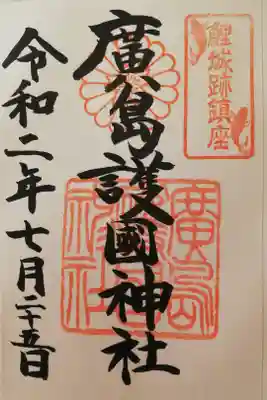 鯉城跡鎮座
廣島護國神社
令和二年七月二十五日
廣島護國神社